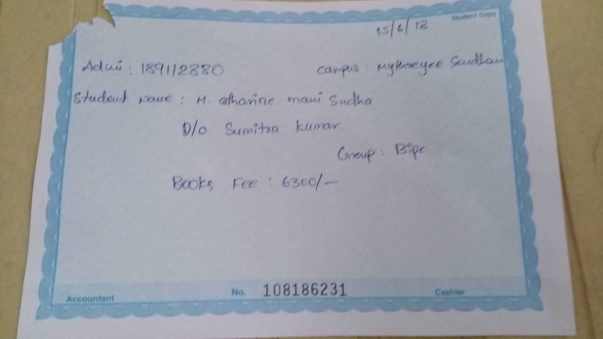 Student Copy
15/6/18
Admi : 189112880 Campus : Mythreyee Sandhan
Student Name : M. catharine mani Sudha
D/o Sumitra kumar
Group : Bipc
Books Fee : 6300/-
Accountant No. 108186231 Cashier